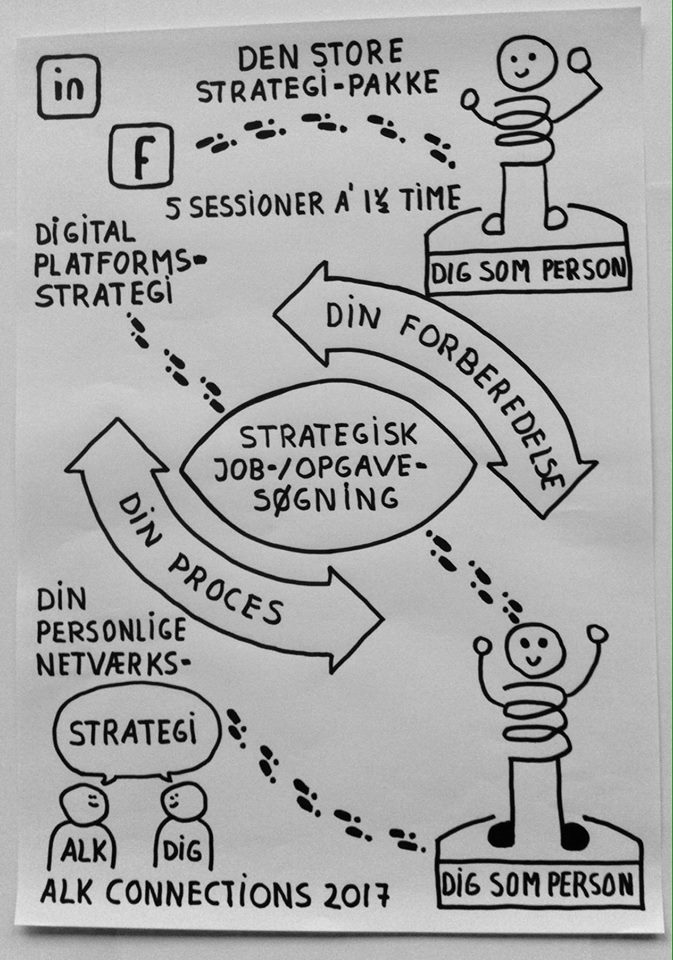 in
DEN STORE
STRATEGI-PAKKE
f
5 SESSIONER A' 1½ TIME
DIG SOM PERSON
DIGITAL
PLATFORMS-
STRATEGI
DIN FORBEREDELSE
STRATEGISK
JOB-/OPGAVE-
SØGNING
DIN PROCES
DIN
PERSONLIGE
NETVÆRKS-
STRATEGI
ALK
DIG
DIG SOM PERSON
ALK CONNECTIONS 2017